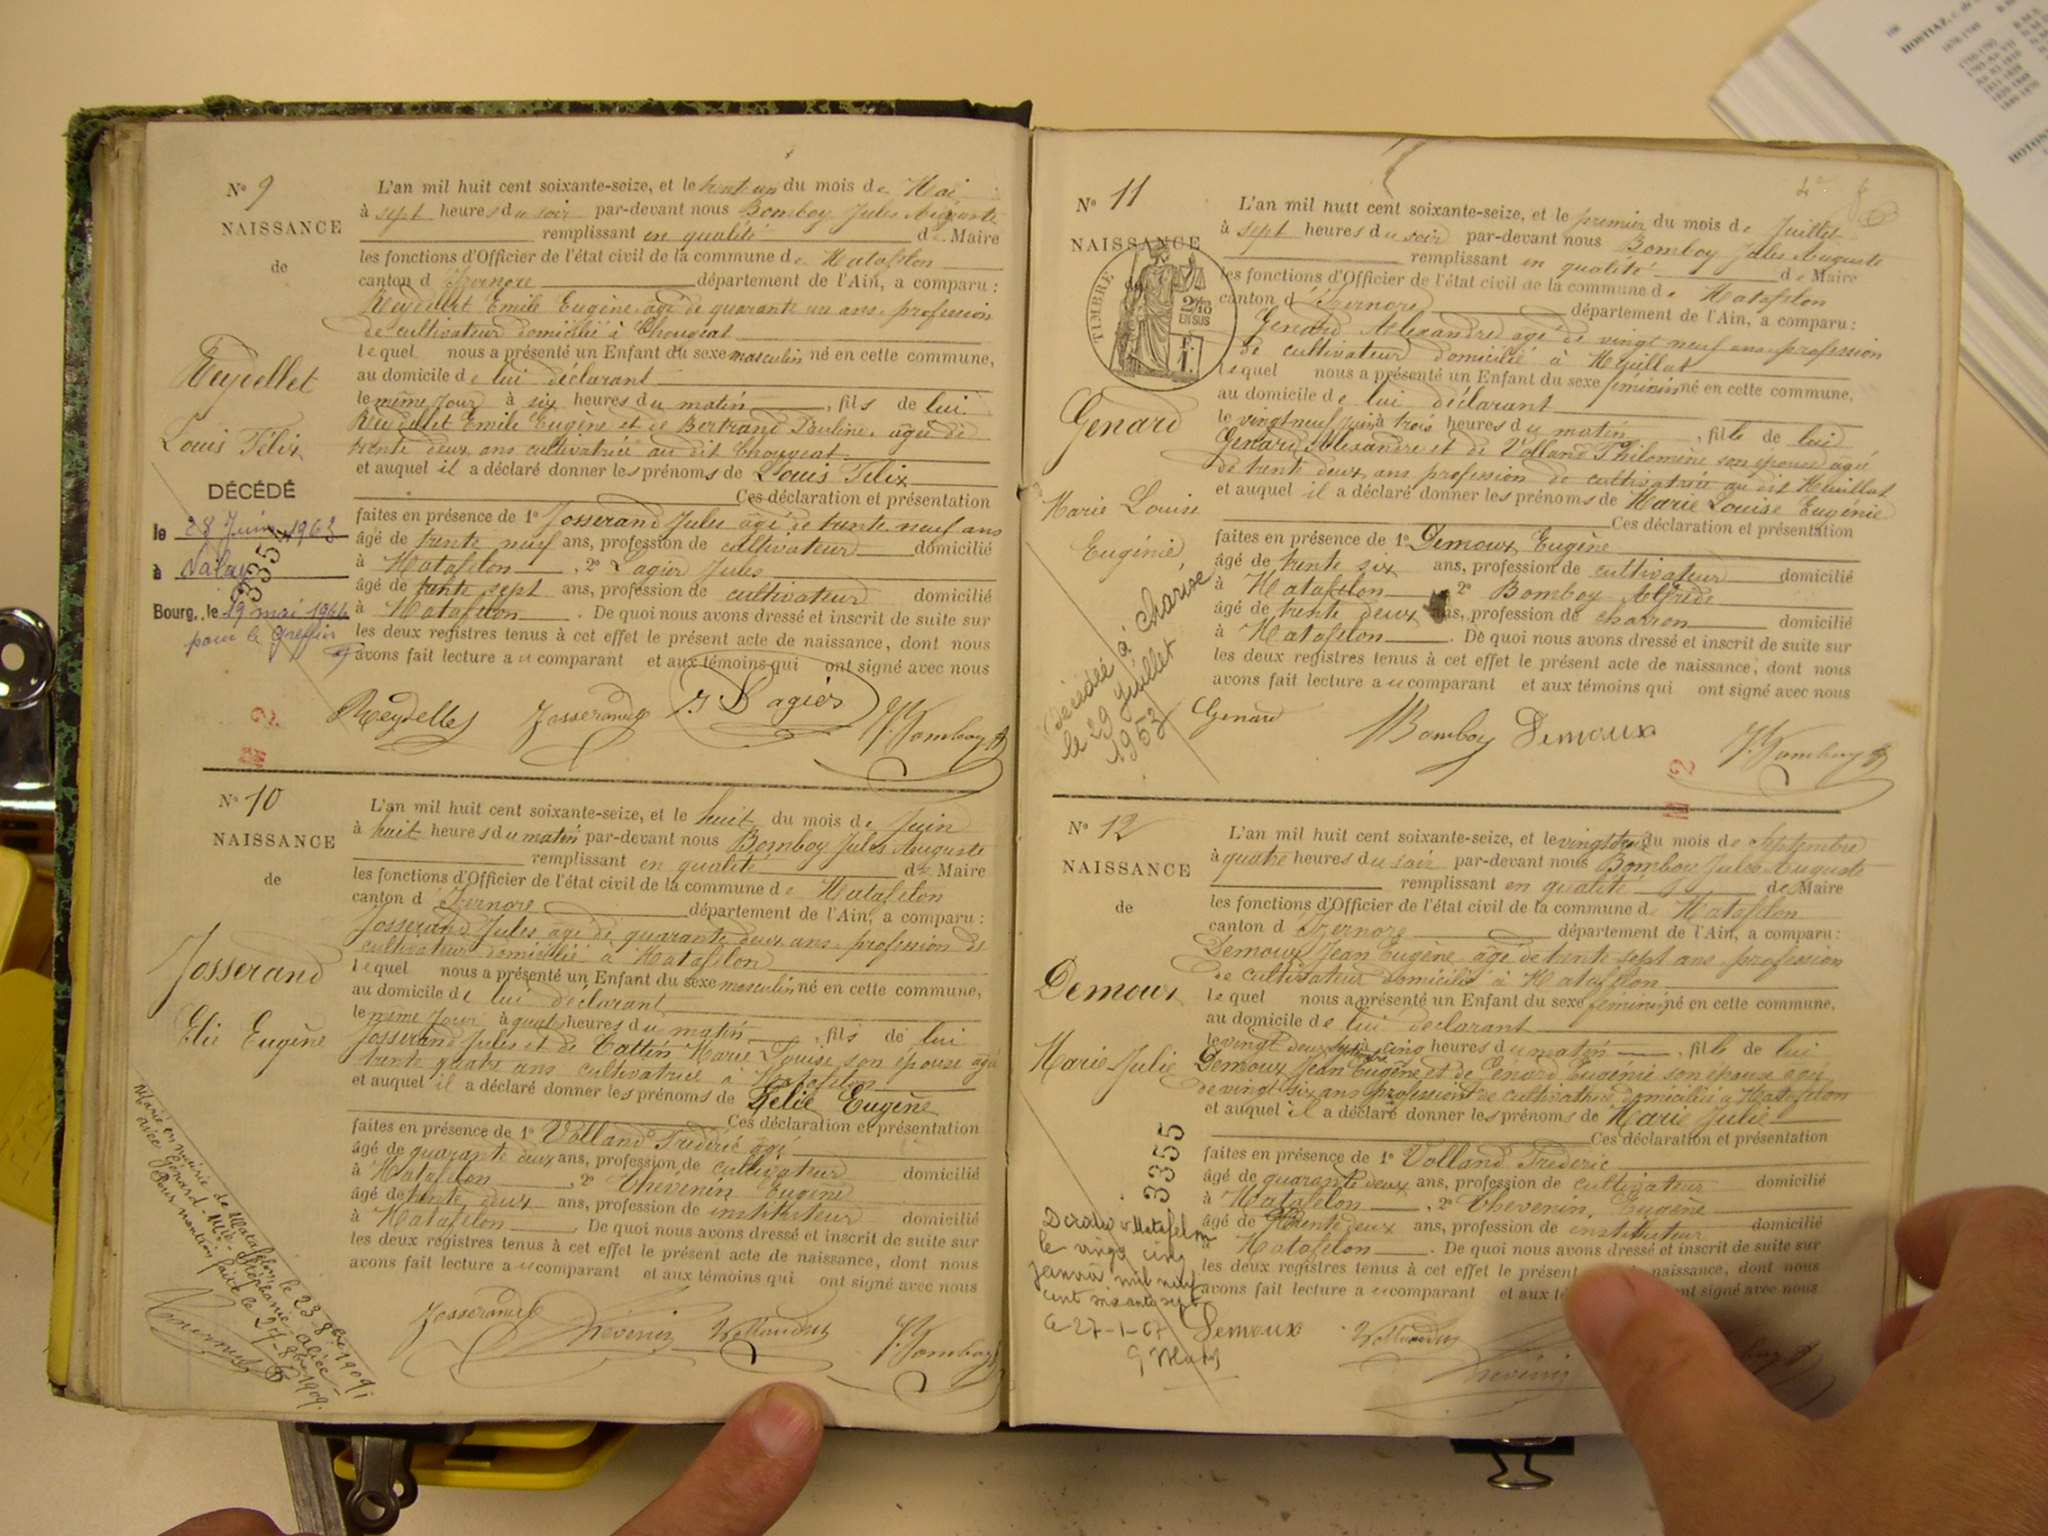 N° 9
NAISSANCE
de
Reydellet
Louis Félix
DÉCÉDÉ
le 28 Juin 1963
à
Bourg, le 19 mai 1964
pour le Greffier
3355
L'an mil huit cent soixante-seize, et le trente un du mois de Mai
à sept heures du soir par-devant nous Bomboy Jules Auguste
remplissant en qualité de Maire
les fonctions d'Officier de l'état civil de la commune de Matafelon
canton d'Izernore département de l'Ain, a comparu :
Reydellet Emile Eugène âgé de quarante un ans, profession
de cultivateur domicilié à Chougeat
lequel nous a présenté un Enfant du sexe masculin né en cette commune,
au domicile de lui déclarant
le même jour à six heures du matin, fils de lui
Reydellet Emile Eugène et de Bertrand Pauline, âgée de
trente deux ans cultivatrice au dit Chougeat
et auquel il a déclaré donner les prénoms de Louis Félix
Ces déclaration et présentation
faites en présence de 1° Josserand Jules âgé de trente neuf ans
âgé de trente neuf ans, profession de cultivateur domicilié
à Matafelon, 2° Lagier Jules
âgé de trente sept ans, profession de cultivateur domicilié
à Matafelon. De quoi nous avons dressé et inscrit de suite sur
les deux registres tenus à cet effet le présent acte de naissance, dont nous
avons fait lecture au comparant et aux témoins qui ont signé avec nous
Reydellet Josserand J Lagier J. Bomboy
N° 10
NAISSANCE
de
Josserand
Elie Eugène
Marié en mairie de Matafelon le 23-8bre 1909
avec Génard Mie Stéphanie Alice
Pour mention faite le 27-8bre 1909.
L'an mil huit cent soixante-seize, et le huit du mois de Juin
à huit heures du matin par-devant nous Bomboy Jules Auguste
remplissant en qualité de Maire
les fonctions d'Officier de l'état civil de la commune de Matafelon
canton d'Izernore département de l'Ain, a comparu :
Josserand Jules âgé de quarante deux ans, profession de
cultivateur domicilié à Matafelon
lequel nous a présenté un Enfant du sexe masculin né en cette commune,
au domicile de lui déclarant
le même jour à quatre heures du matin, fils de lui
Josserand Jules et de Cattin Marie Louise son épouse âgée
trente quatre ans cultivatrice à Matafelon
et auquel il a déclaré donner les prénoms de Eugène
Ces déclaration et présentation
faites en présence de 1° Volland Frédéric âgé
âgé de quarante deux ans, profession de cultivateur domicilié
à Matafelon, 2° Thevenin Eugène
âgé de trente deux ans, profession de instituteur domicilié
à Matafelon. De quoi nous avons dressé et inscrit de suite sur
les deux registres tenus à cet effet le présent acte de naissance, dont nous
avons fait lecture au comparant et aux témoins qui ont signé avec nous
Josserand Thévenin Volland J. Bomboy
N° 11
NAISSANCE
TIMBRE
2/10
EN SUS
Genard
Marie Louise
Eugénie
Décédée à Charix
le 29 Juillet
1953
L'an mil huit cent soixante-seize, et le premier du mois de Juillet
à sept heures du soir par-devant nous Bomboy Jules Auguste
remplissant en qualité de Maire
les fonctions d'Officier de l'état civil de la commune de Matafelon
canton d'Izernore département de l'Ain, a comparu :
Genard Alexandre âgé de vingt neuf ans profession
de cultivateur domicilié à Heuillat
lequel nous a présenté un Enfant du sexe féminin né en cette commune,
au domicile de lui déclarant
le vingt neuf juin à trois heures du matin, fille de lui
Genard Alexandre et de Volland Philomène son épouse âgée
de trente deux ans profession de cultivatrice au dit Heuillat
et auquel il a déclaré donner les prénoms de Marie Louise Eugénie
Ces déclaration et présentation
faites en présence de 1° Demoux Eugène
âgé de trente six ans, profession de cultivateur domicilié
à Matafelon, 2° Bomboy Alfred
âgé de trente deux ans, profession de charron domicilié
à Matafelon. De quoi nous avons dressé et inscrit de suite sur
les deux registres tenus à cet effet le présent acte de naissance, dont nous
avons fait lecture au comparant et aux témoins qui ont signé avec nous
Genard Bomboy Demoux J. Bomboy
N° 12
NAISSANCE
de
Demoux
Marie Julie
3355
Décédée à Matafelon
le vingt cinq
janvier mil neuf
cent soixante sept
le 27-1-67
L'an mil huit cent soixante-seize, et le vingt deux du mois de Septembre
à quatre heures du soir par-devant nous Bomboy Jules Auguste
remplissant en qualité de Maire
les fonctions d'Officier de l'état civil de la commune de Matafelon
canton d'Izernore département de l'Ain, a comparu :
Demoux Jean Eugène âgé de trente sept ans profession
de cultivateur domicilié à Matafelon
lequel nous a présenté un Enfant du sexe féminin né en cette commune,
au domicile de lui déclarant
le vingt deux à cinq heures du matin, fille de lui
Demoux Jean Eugène et de Génard Eugénie son épouse âgée
de vingt six ans profession de cultivatrice domiciliée à Matafelon
et auquel il a déclaré donner les prénoms de Marie Julie
Ces déclaration et présentation
faites en présence de 1° Volland Frédéric
âgé de quarante deux ans, profession de cultivateur domicilié
à Matafelon, 2° Thevenin Eugène
âgé de trente deux ans, profession de instituteur domicilié
à Matafelon. De quoi nous avons dressé et inscrit de suite sur
les deux registres tenus à cet effet le présent naissance, dont nous
avons fait lecture au comparant et aux ont signé avec nous
Demoux Volland Thévenin
HOSTIAZ